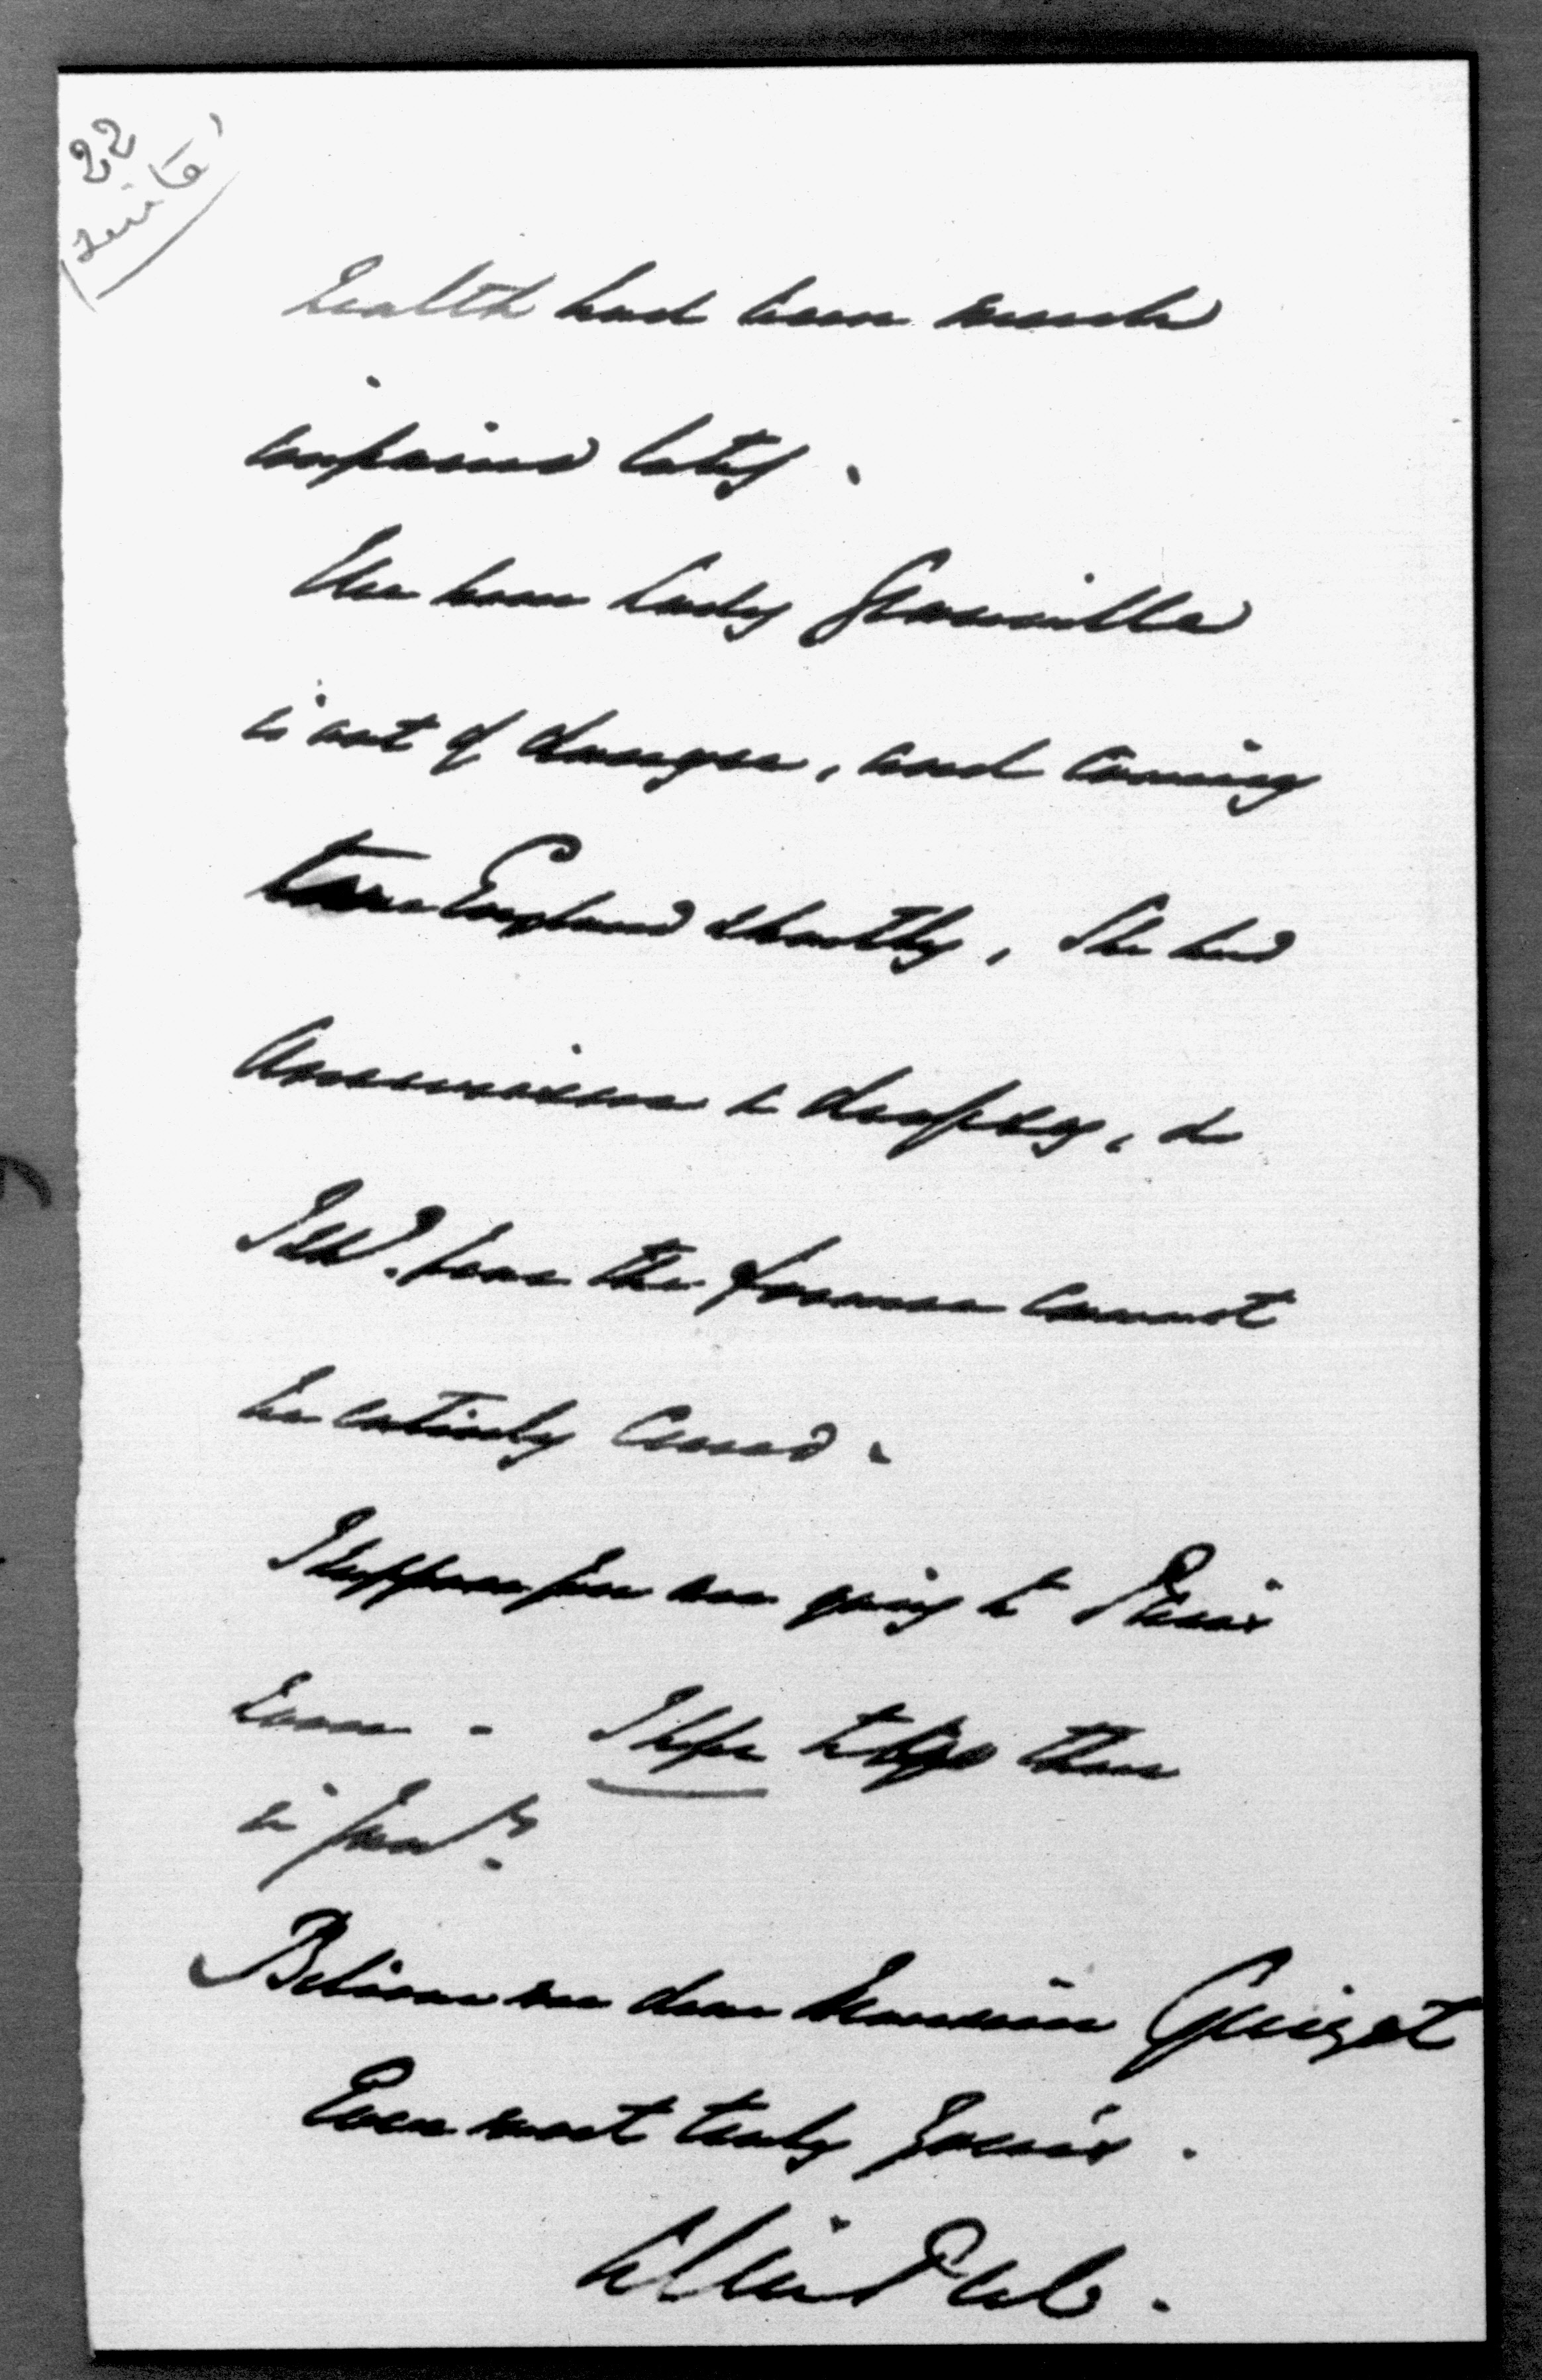 22
suite
health had been much
impaired lately.
The dear Lady Granville
is out of danger, and coming
to England shortly, She had
Aneurism & dropsy, &
I shd. fear the former cannot
be entirely cured.
I suppose you are going to Paris
soon - I hope to go there
in Jany.
Believe me dear Monsieur Guizot
Ever most truly yours.